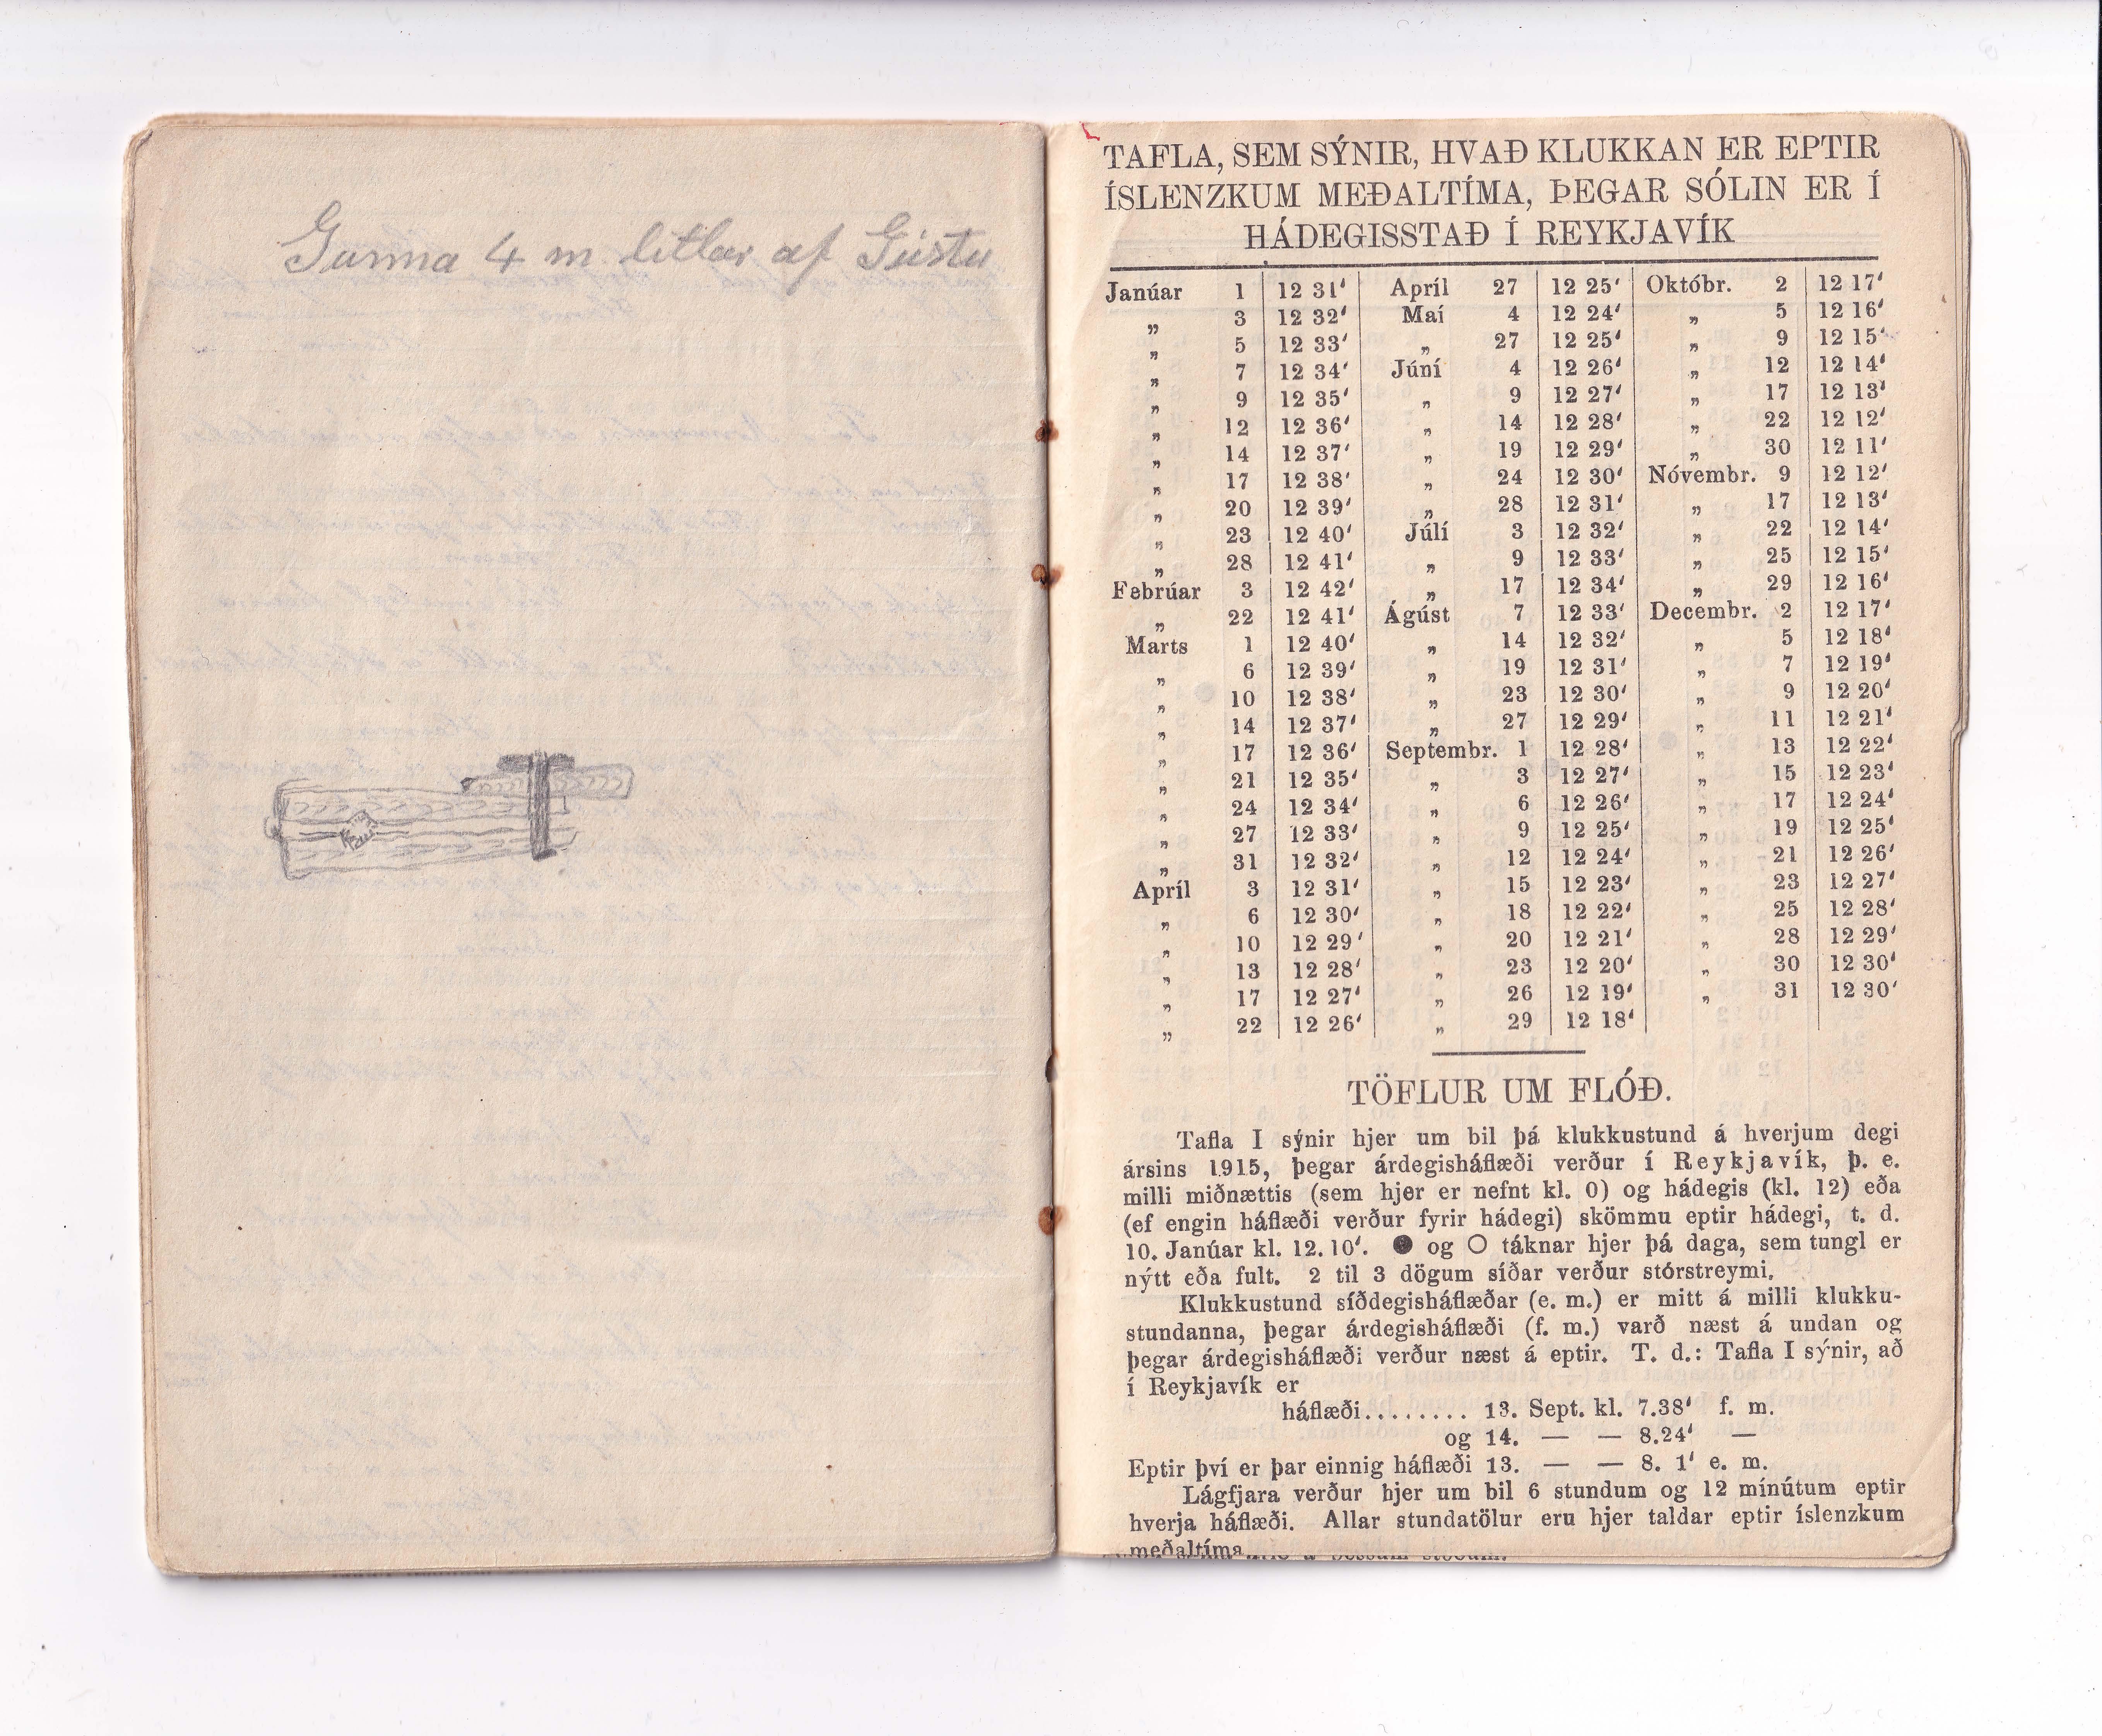 Gunna 4 m litlar af Gústu
TAFLA, SEM SÝNIR, HVAÐ KLUKKAN ER EPTIR
ÍSLENZKUM MEÐALTÍMA, ÞEGAR SÓLIN ER Í
HÁDEGISSTAÐ Í REYKJAVÍK
Janúar 1 12 31' Apríl 27 12 25' Októbr. 2 12 17'
„ 3 12 32' Maí 4 12 24' „ 5 12 16'
„ 5 12 33' „ 27 12 25' „ 9 12 15'
„ 7 12 34' Júní 4 12 26' „ 12 12 14'
„ 9 12 35' „ 9 12 27' „ 17 12 13'
„ 12 12 36' „ 14 12 28' „ 22 12 12'
„ 14 12 37' „ 19 12 29' „ 30 12 11'
„ 17 12 38' „ 24 12 30' Nóvembr. 9 12 12'
„ 20 12 39' „ 28 12 31' „ 17 12 13'
„ 23 12 40' Júlí 3 12 32' „ 22 12 14'
„ 28 12 41' „ 9 12 33' „ 25 12 15'
Febrúar 3 12 42' „ 17 12 34' „ 29 12 16'
„ 22 12 41' Ágúst 7 12 33' Decembr. 2 12 17'
Marts 1 12 40' „ 14 12 32' „ 5 12 18'
„ 6 12 39' „ 19 12 31' „ 7 12 19'
„ 10 12 38' „ 23 12 30' „ 9 12 20'
„ 14 12 37' „ 27 12 29' „ 11 12 21'
„ 17 12 36' Septembr. 1 12 28' „ 13 12 22'
„ 21 12 35' „ 3 12 27' „ 15 12 23'
„ 24 12 34' „ 6 12 26' „ 17 12 24'
„ 27 12 33' „ 9 12 25' „ 19 12 25'
„ 31 12 32' „ 12 12 24' „ 21 12 26'
Apríl 3 12 31' „ 15 12 23' „ 23 12 27'
„ 6 12 30' „ 18 12 22' „ 25 12 28'
„ 10 12 29' „ 20 12 21' „ 28 12 29'
„ 13 12 28' „ 23 12 20' „ 30 12 30'
„ 17 12 27' „ 26 12 19' „ 31 12 30'
„ 22 12 26' „ 29 12 18'
TÖFLUR UM FLÓÐ.
Tafla I sýnir hjer um bil þá klukkustund á hverjum degi
ársins 1915, þegar árdegisháflæði verður í Reykjavík, þ. e.
milli miðnættis (sem hjer er nefnt kl. 0) og hádegis (kl. 12) eða
(ef engin háflæði verður fyrir hádegi) skömmu eptir hádegi, t. d.
10. Janúar kl. 12.10'. ● og ○ táknar hjer þá daga, sem tungl er
nýtt eða fult. 2 til 3 dögum síðar verður stórstreymi.
Klukkustund síðdegisháflæðar (e. m.) er mitt á milli klukku-
stundanna, þegar árdegisháflæði (f. m.) varð næst á undan og
þegar árdegisháflæði verður næst á eptir. T. d.: Tafla I sýnir, að
í Reykjavík er
háflæði........ 13. Sept. kl. 7.38' f. m.
og 14. — — 8.24' —
Eptir því er þar einnig háflæði 13. — — 8. 1' e. m.
Lágfjara verður hjer um bil 6 stundum og 12 mínútum eptir
hverja háflæði. Allar stundatölur eru hjer taldar eptir íslenzkum
meðaltíma.